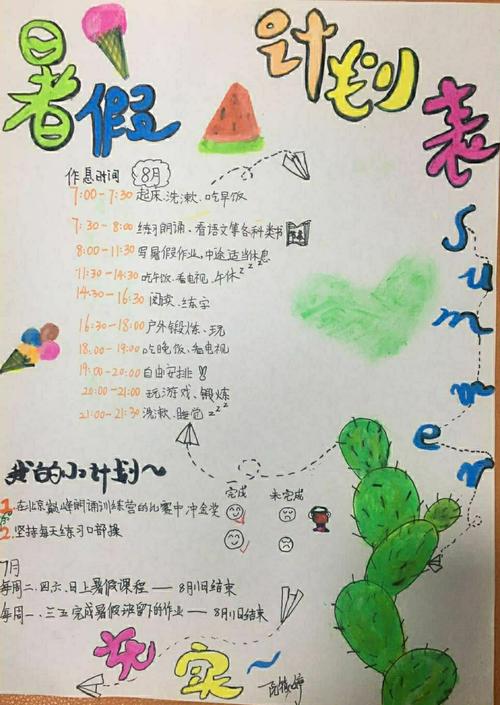 暑假
计划表
Summer
作息时间 8月
7:00-7:30 起床、洗漱、吃早饭
7:30-8:00 练习朗诵、看语文等各种类书
8:00-11:30 写暑假作业，中途适当休息
11:30-14:30 吃午饭、看电视、午休zzz
14:30-16:30 阅读、练字
16:30-18:00 户外锻炼、玩
18:00-19:00 吃晚饭、看电视
19:00-20:00 自由安排
20:00-21:00 玩游戏、锻炼
21:00-21:30 洗漱、睡觉zzz
我的小计划~
完成 未完成
1.在北京巅峰朗诵训练营的比赛中冲金奖
2.坚持每天练习口部操
7月
每周二、四、六、日上暑假课程——8月1日结束
每周一、三、五完成暑假班留下的作业——8月1日结束
充实~